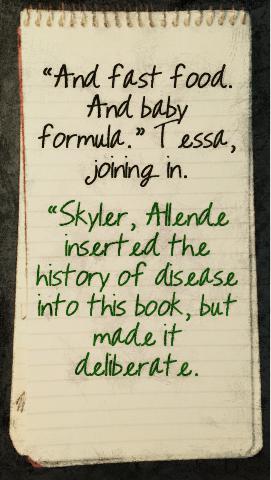 “And fast food.
And baby
formula.” Tessa,
joining in.
“Skyler, Allende
inserted the
history of disease
into this book, but
made it
deliberate.